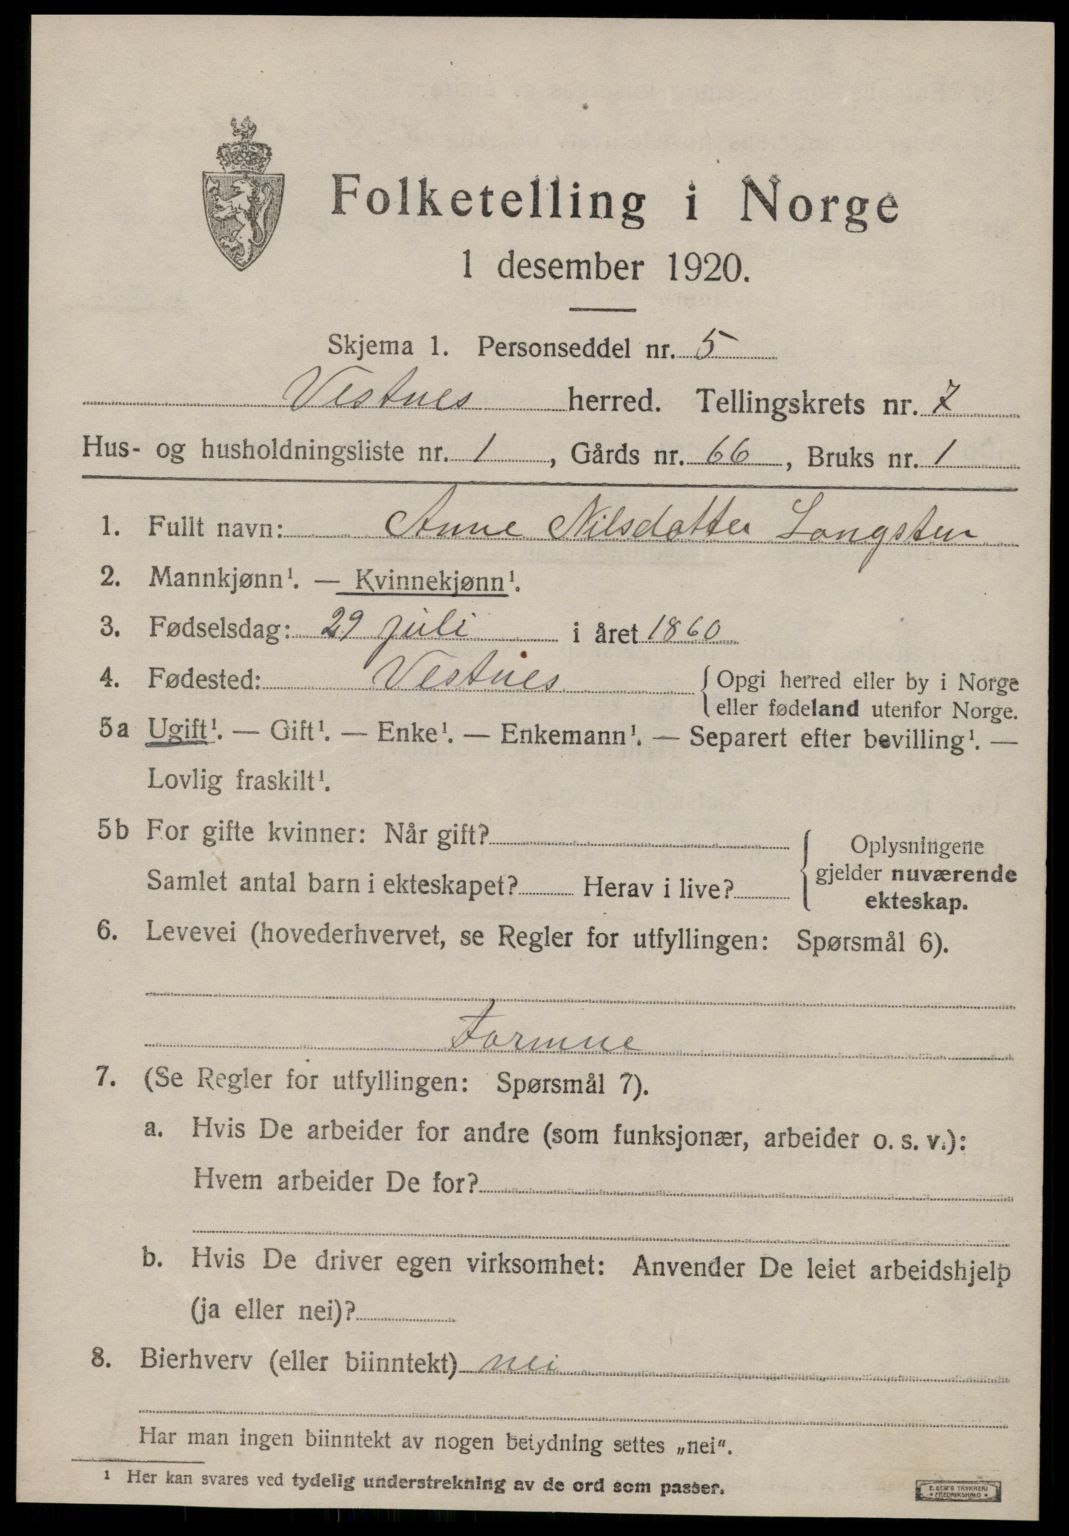 Folketelling i Norge
1 desember 1920.
Skjema 1. Personseddel nr. 5
Vestnes herred. Tellingskrets nr. 7
Hus- og husholdningsliste nr. 1, Gårds nr. 66, Bruks nr. 1
1. Fullt navn: Anne Nilsdatter Langsten
2. Mannkjønn¹. — Kvinnekjønn¹.
3. Fødselsdag: 29 juli i året 1860
4. Fødested: Vestnes { Opgi herred eller by i Norge
eller fødeland utenfor Norge.
5a Ugift¹. — Gift¹. — Enke¹. — Enkemann¹. — Separert efter bevilling¹. —
Lovlig fraskilt¹.
5b For gifte kvinner: Når gift?
Samlet antal barn i ekteskapet? Herav i live?
{ Oplysningene
gjelder nuværende
ekteskap.
6. Levevei (hovederhvervet, se Regler for utfyllingen: Spørsmål 6).
Formue
7. (Se Regler for utfyllingen: Spørsmål 7).
a. Hvis De arbeider for andre (som funksjonær, arbeider o. s. v.):
Hvem arbeider De for?
b. Hvis De driver egen virksomhet: Anvender De leiet arbeidshjelp
(ja eller nei)?
8. Bierhverv (eller biinntekt) nei
Har man ingen biinntekt av nogen betydning settes „nei".
¹ Her kan svares ved tydelig understrekning av de ord som passer.
E. SEM'S TRYKKERI
• FREDRIKSHALD •